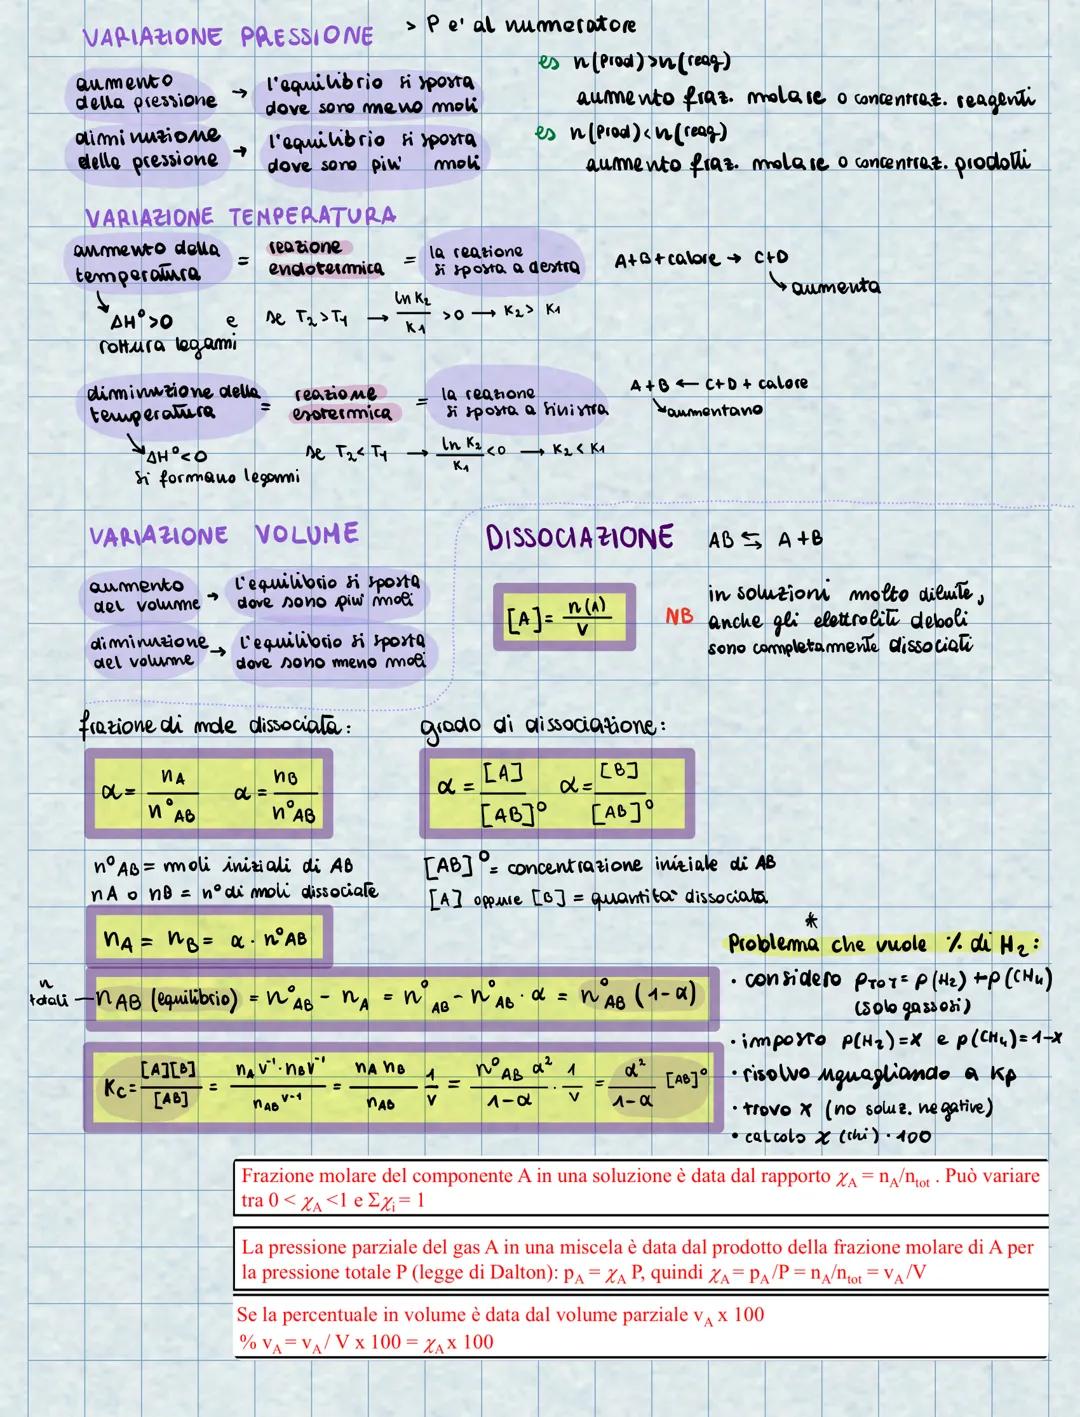 VARIAZIONE PRESSIONE > P e' al numeratore
aumento della pressione → l'equilibrio si sposta dove sono meno moli
diminuzione della pressione → l'equilibrio si sposta dove sono piu' moli
es n(prod)>n(reag)
aumento fraz. molare o concentraz. reagenti
es n(prod)<n(reag)
aumento fraz. molare o concentraz. prodotti
VARIAZIONE TEMPERATURA
aumento della temperatura = reazione endotermica = la reazione si sposta a destra
A+B+calore → C+D
aumenta
ΔH°>0 e se T₂>T₁ → ln K₂/K₁ >0 → K₂> K₁
rottura legami
diminuzione della temperatura = reazione esotermica = la reazione si sposta a sinistra
A+B ← C+D + calore
aumentano
ΔH°<0 se T₂<T₁ → ln K₂/K₁ <0 → K₂<K₁
si formano legami
VARIAZIONE VOLUME
aumento del volume → l'equilibrio si sposta dove sono piu' moli
diminuzione del volume → l'equilibrio si sposta dove sono meno moli
DISSOCIAZIONE AB ⇆ A+B
[A]= n(A)/V
NB in soluzioni molto diluite,
anche gli elettroliti deboli
sono completamente dissociati
frazione di mole dissociata:
α= nA/n°AB α= nB/n°AB
n°AB = moli iniziali di AB
nA o nB = n° di moli dissociate
grado di dissociazione:
α = [A]/[AB]° α= [B]/[AB]°
[AB]°= concentrazione iniziale di AB
[A] oppure [B] = quantita' dissociata
nA = nB = α · n°AB
n totali — nAB (equilibrio) = n°AB - nA = n°AB - n°AB · α = n°AB (1-α)
Kc= [A][B]/[AB] = nA V⁻¹·nB V⁻¹/nAB V⁻¹ = nA nB/nAB 1/V = n°AB α²/1-α · 1/V = α²/1-α [AB]°
*
Problema che vuole % di H₂:
• considero PTOT = p(H₂) + p(CH₄)
(solo gassosi)
• imposto p(H₂)=x e p(CH₄)=1-x
• risolvo uguagliando a Kp
• trovo x (no soluz. negative)
• calcolo χ (chi) · 100
Frazione molare del componente A in una soluzione è data dal rapporto χA = nA/ntot . Può variare
tra 0 < χA <1 e Σχi = 1
La pressione parziale del gas A in una miscela è data dal prodotto della frazione molare di A per
la pressione totale P (legge di Dalton): pA = χA P, quindi χA = pA /P = nA/ntot = vA /V
Se la percentuale in volume è data dal volume parziale vA x 100
% vA = vA / V x 100 = χA x 100